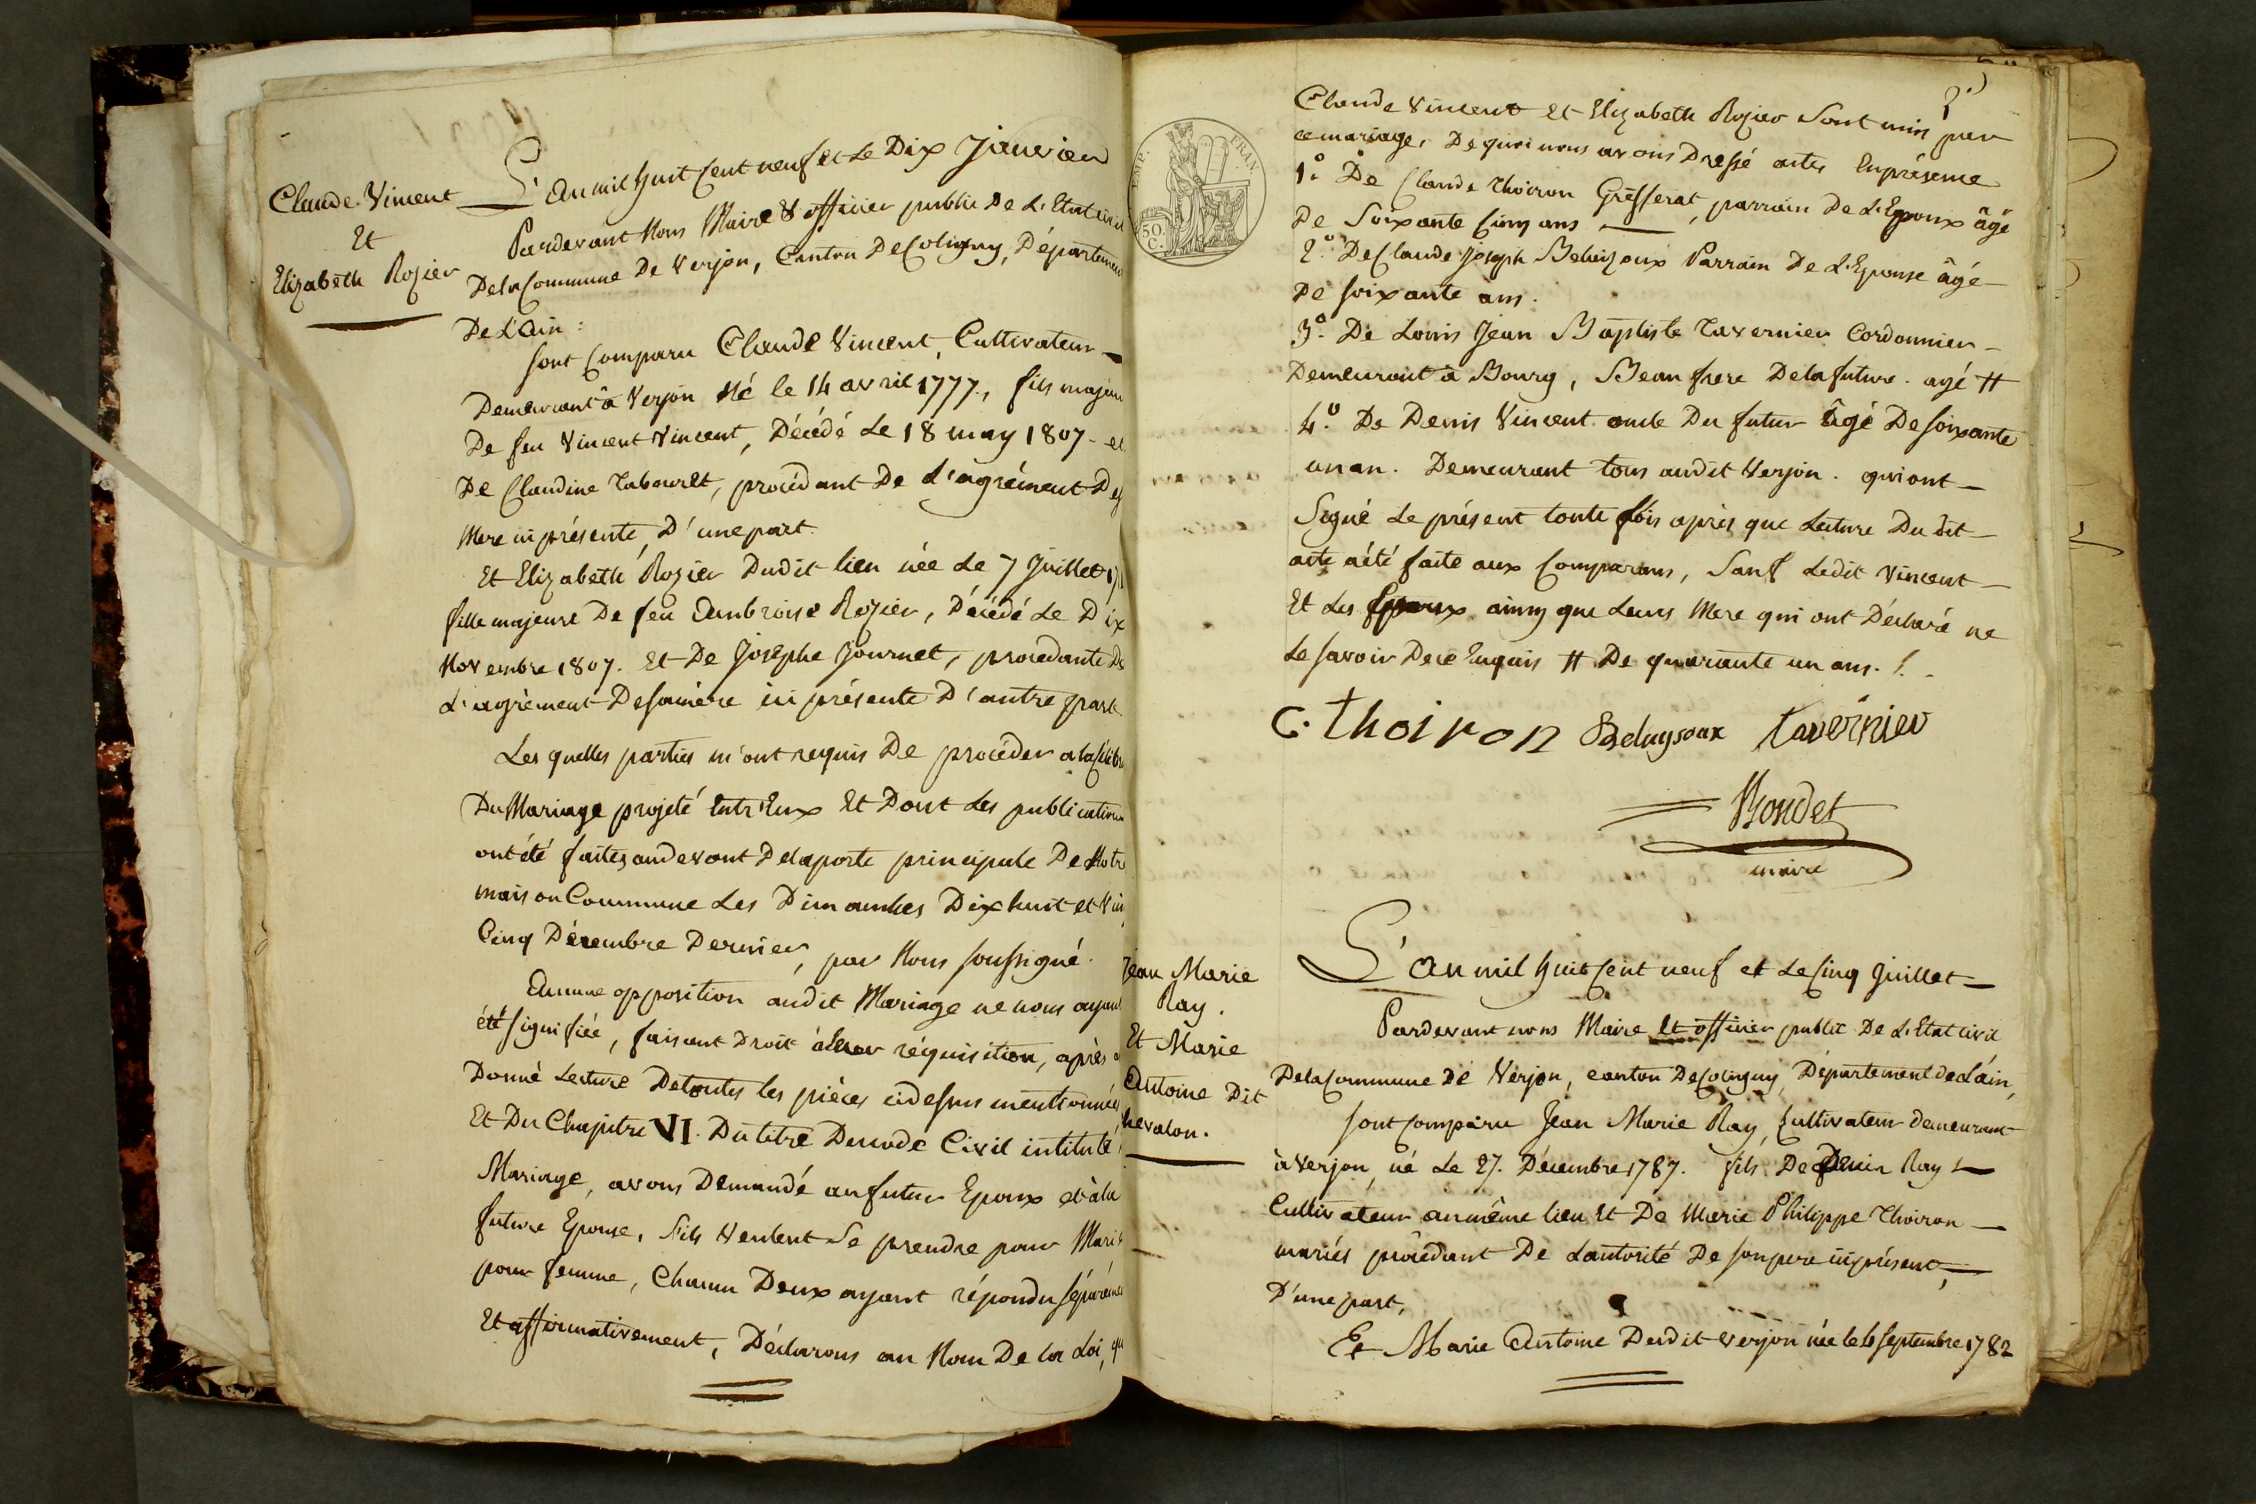 Claude Vincent
Et
Elizabeth Rozier
L'an mil huit cent neuf et Le Dix Janvier
Pardevant Nous Maire & officier public De L'Etat civil
De la Commune De Verjon, Canton De Coligny, Département
De L'Ain:
sont Comparu Claude Vincent, Cultivateur
Demeurant à Verjon né le 14 avril 1777, fils majeur
De feu Vincent Vincent, Décédé Le 18 may 1807 - et
De Claudine Tabouret, procédant De L'agrément De
Mere ici présente, D'une part.
Et Elizabeth Rozier Dudit lieu née Le 7 Juillet
fille majeure De feu Ambroise Rozier, Décédé Le Dix
Novembre 1807. Et De Josephe Journet, procedante De
L'agrèment De sa mère ici présente D'autre part.
Les quelles parties m'ont requis De procéder a la célébr
Du Mariage projeté Entr'Eux Et Dont Les publications
ont été faites au devant De la porte principale De Notre
maison Commune Les Dimanches Dix huit et Vin
Cinq Décembre Dernier, par Nous soussigné.
Aucune opposition audit Mariage ne nous ayant
été signifiée, faisant Droit à leur réquisition, après
Donné Lecture De toutes les pièces ci dessus mentionnées
Et Du Chapitre VI. Du titre Du code Civil intitulé
Mariage, avons Demandé au futur Epoux et à la
future Epouse, s'ils Veulent Se prendre pour Mari
pour femme, Chacun Deux ayant répondu séparéme
Et affirmativement, Déclarons au Nom De la Loi, qu
EMP. FRAN.
50.
C.
2
Claude Vincent Et Elizabeth Rozier Sont unis par
ce mariage, De quoi nous avons Dressé acte, En présence
1º. De Claude Thoiron Gresserat, parrain De L'Epoux âgé
De Soixante Cinq ans
2º. De Claude Joseph Beluizoux Parrain De L'Epouse âgé
De soixante ans.
3º. De Louis Jean Baptiste Tavernier Cordonnier
Demeurant à Bourg, Beau frere De la future. agé #
4º. De Denis Vincent oncle Du futur âgé De soixante
un an. Demeurant tous audit Verjon. qui ont
Signé Le présent toute fois après que Lecture Du dit
acte a été faite aux Comparans, Sauf Ledit Vincent
Et Les Epoux ainsy que Leurs Mere qui ont Déclaré ne
Le savoir De ce Enquis # De quarante un ans.
C. thoiron Beluysoux tavernier
Bondet
maire
Jean Marie
Ray.
Et Marie
Antoine Dit
hevalon.
L'an mil huit cent neuf et Le Cinq Juillet
Pardevant nous Maire Et officier public De L'Etat civil
De la Commune De Verjon, canton De Coligny, Département de L'ain,
sont comparu Jean Marie Ray, Cultivateur demeurant
à Verjon, né Le 27. Décembre 1787. fils De Denis Ray
Cultivateur au même lieu Et De Marie Philippe Thoiron
mariés procédant De L'autorité De son pere ici présent,
D'une part,
Et Marie Antoine Dudit Verjon née le 4 septembre 1782